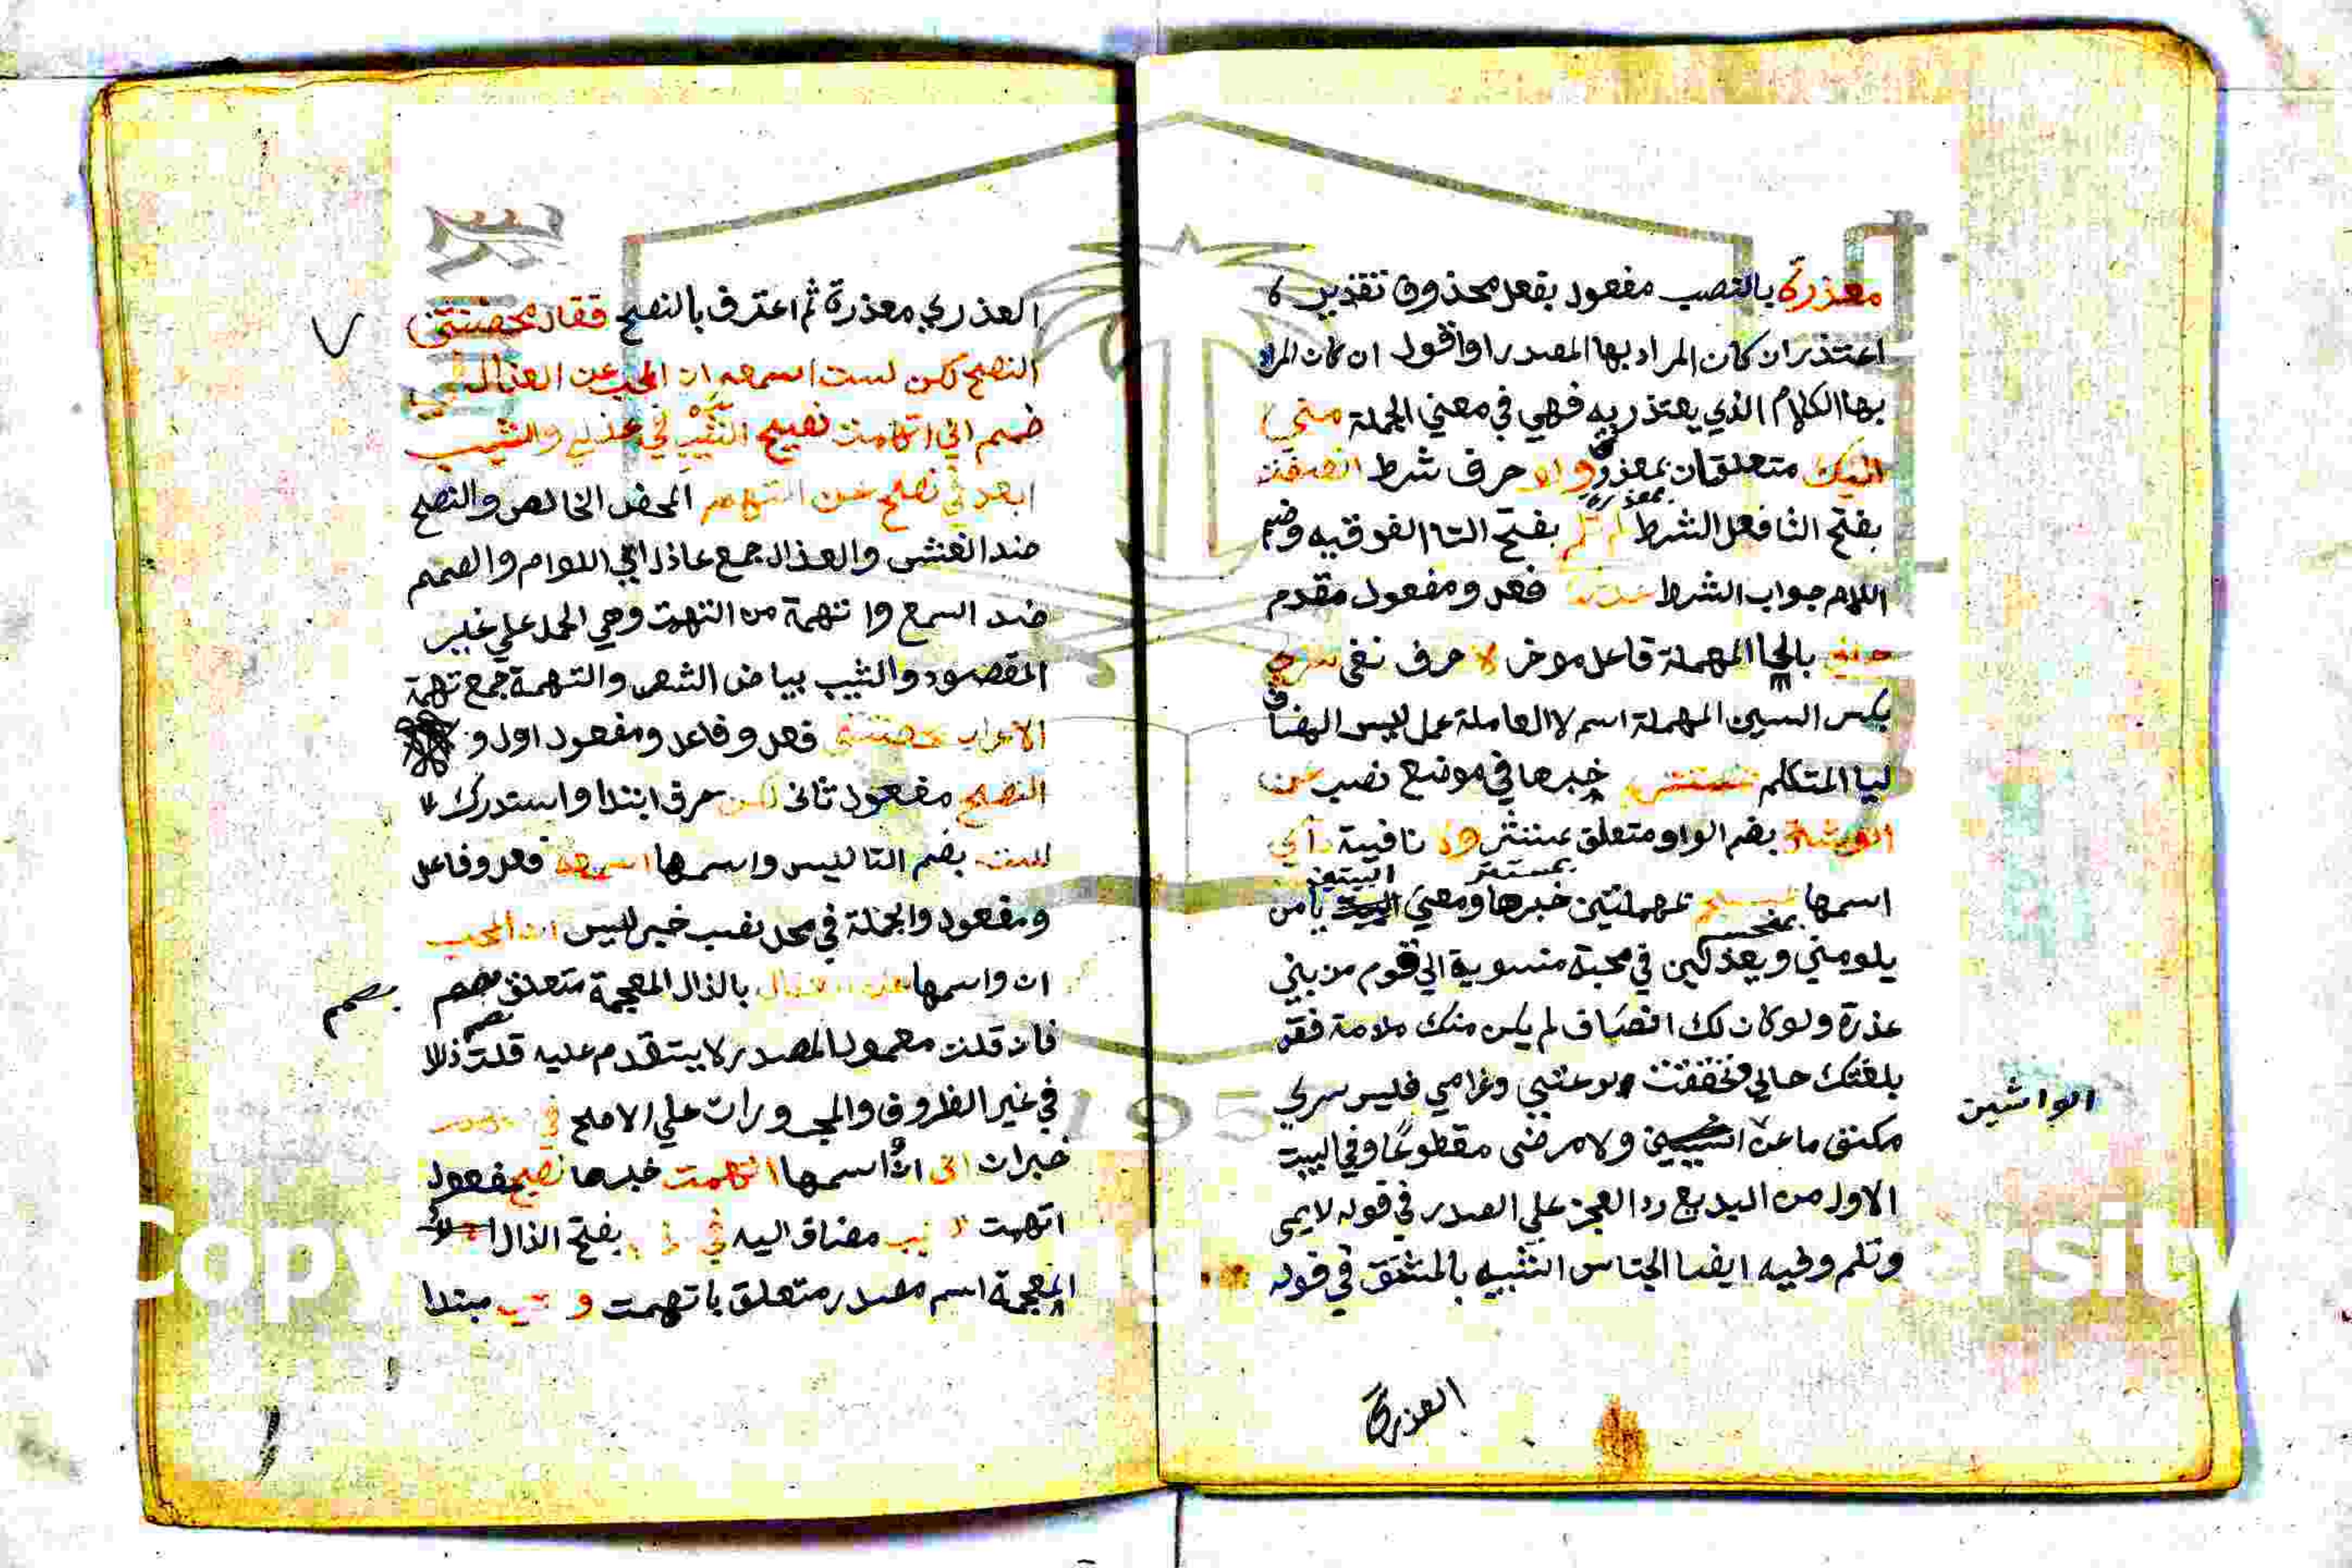 معذرة بالنصب مفعول بفعل محذوف تقديره
اعتذر ان كان المراد بها المصدر او اقول ان كان المراد
بها الكلام الذي يعتذر به فهي في معني الجملة مني
اليك متعلقان بمعذرة ولو حرف شرط انصفت
بمعذرة
بفتح التا فعل الشرط لم تلم بفتح التا الفوقيه وضم
اللام جواب الشرط عدتك فعل ومفعول مقدم
حالي بالحا المهملة فاعل موخر لا حرف نفي سري
بكسر السين المهملة اسم لا العاملة عمل ليس المضاف
ليا المتكلم بمستتر خبرها في موضع نصب عن
الوشاة بضم الواو متعلق بمستتر ولا نافية دآي
اسمها بمنحسم بمهملتين خبرها ومعني البيتين يامن
بمستتر
بمنحسم
يلومني ويعذلني في محبة منسوبة الي قوم من بني
عذرة ولو كان لك انصاف لم يكن منك ملامة فقد
بلغتك حالي وتحققت لوعتي وغرامي فليس سري
مكتتما عن ولا مرضي مقطوعا وفي البيت
الواشين
الاول من البديع رد العجز علي الصدر في قوله لايمي
وتلم وفيه ايضا الجناس الشبيه بالمشتق في قوله
العذري
العذري معذرة ثم اعترف بالنصح فقال محضتني
النصح لكن لست اسمعه ان المحب عن العذال في
صمم اني اتهمت نصيح الشيب في عذلي والشيب
ابعد في نصح عن التهم المحض الخالص والنصح
ضد الغش والعذال جمع عاذل اي اللوام والصمم
ضد السمع واتهمة من التهمة وهي الحمل علي غير
المقصود والشيب بياض الشعر والتهمة جمع تهمة
الاعراب محضتني فعل وفاعل ومفعول اول و
النصح مفعول ثاني لكن حرف ابتدا واستدراك
لست بضم التا ليس واسمها اسمعه فعل وفاعل
ومفعول والجملة في محل نصب خبر ليس ان المحب
ان واسمها عن العذال بالذال المعجمة متعلق بصمم
بصمم
فان قلت معمول المصدر لا يتقدم عليه قلت ذلك
في غير الظروف والمجرورات علي الاصح في صمم
خبر ان اني ان اسمها اتهمت خبرها نصيح مفعول
اتهمت الشيب مضاف اليه في عذلي بفتح الذال
المعجمة اسم مصدر متعلق باتهمت والشيب مبتدا